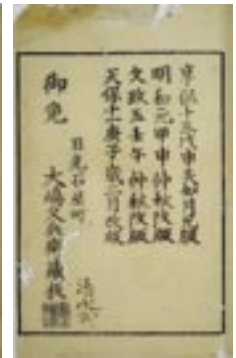 享保十三戊申歳初月元版
明和元甲申仲秋改版
文政五壬午仲秋改版
天保十一庚子歳二月改版
日光石屋町
御免 大嶋久兵衛蔵板